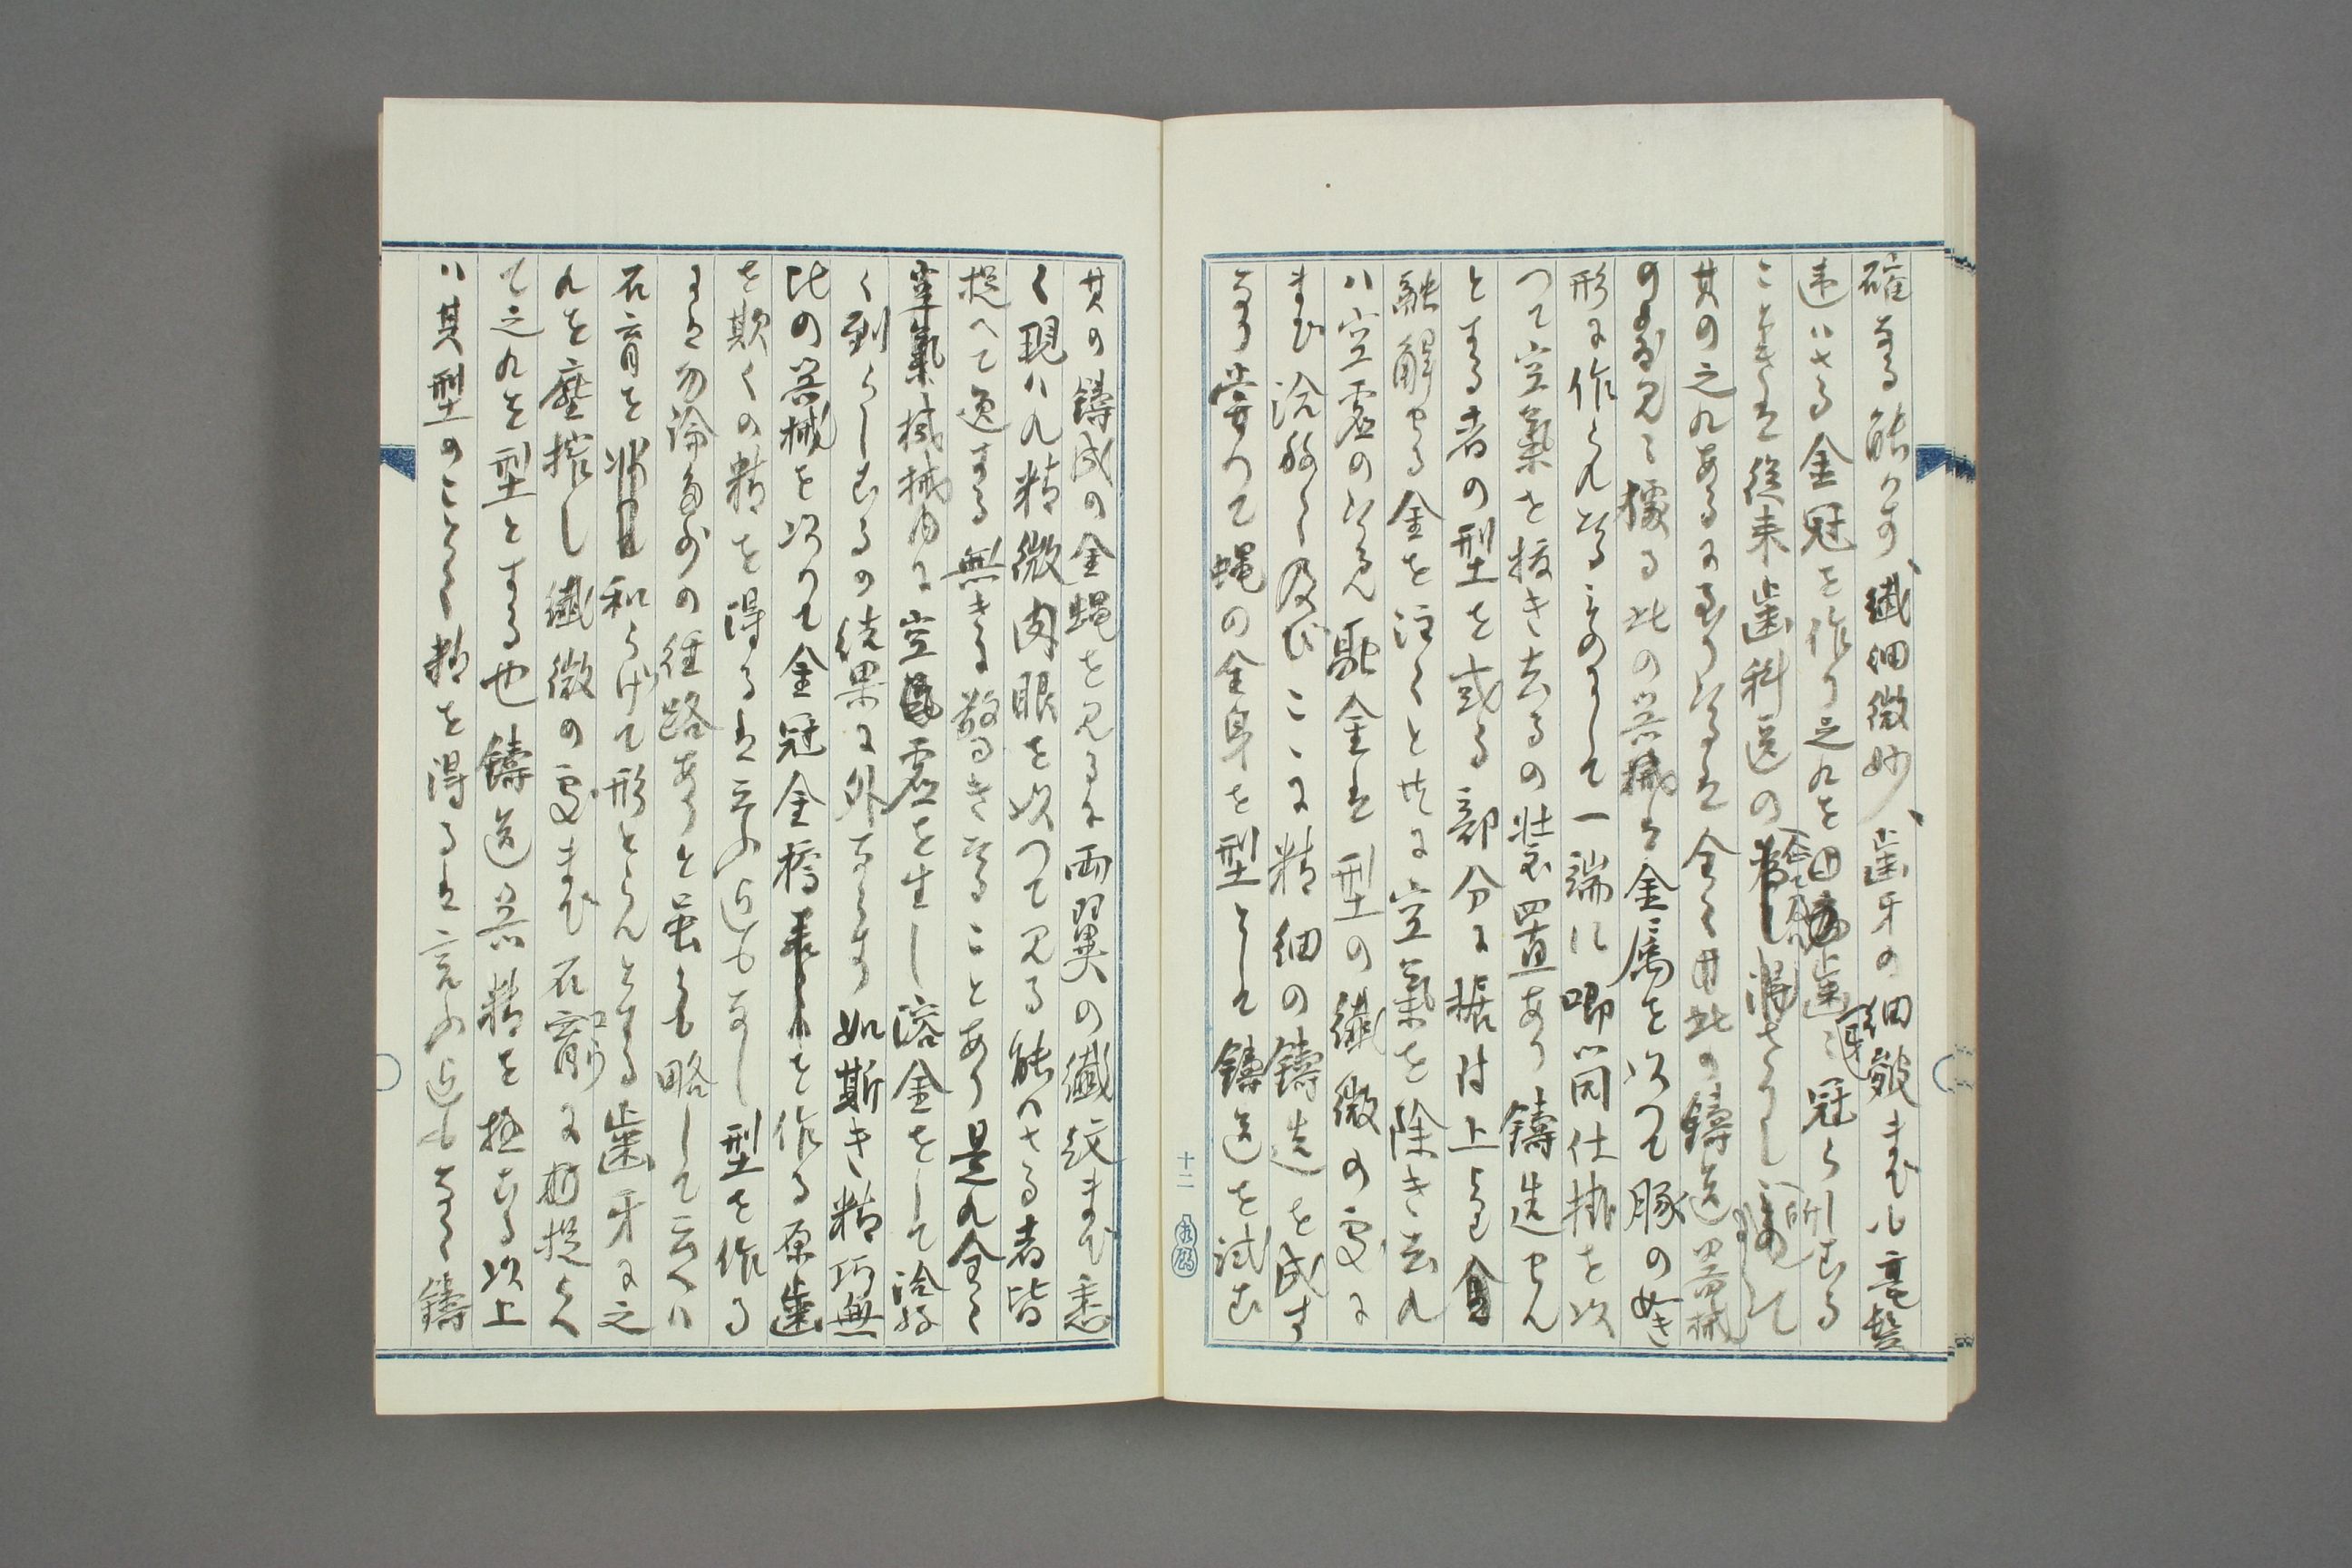 確なる能はず、纎細微妙、歯牙の細皺まで小毫髪
違はざる金冠を作り之れを歯に冠らしむる
ことは従来歯科医の
其の之れあるに至りたるは全く此の鋳造器械
の発見に據る此の器械は金属を以つて豚の如き
形に作られたるものにして一端に喞筒仕掛を以
つて空氣を抜き去るの装置あり鋳造せん
とする者の型を或る部分に据付上
融解せる金を注くと共に空氣を除き去れ
ハ空虚の処え融金は型の纎微の處に
まで流られ及びこゝに精細の鋳造を成す
なり嘗つて蠅の全身を型として鋳造を試む
其の鋳成の金蠅を見るに両翼の纎紋まで悉
く現ハれ精微肉眼を以つて見る能ハさる者皆
捉へて逸する無きに驚ろきたることあり是れ全く
器械内に空虚を生し溶金をして
く到らしむるの結果に外ならず如斯き精巧無
比の器械を以つて金冠金橋を作る原歯
を欺くの精を得るは言ふ迄もなし型を作る
には勿論多少の径路ありと虽も略して云へハ
石膏を和らげて形とらんとする歯牙に之
れを壓搾し纎微の處まで石膏に捉らへ
て之れを型とする也鋳造器精を極むる以上
ハ其型のことく精を得るは言ふ迄もなく鋳
十二